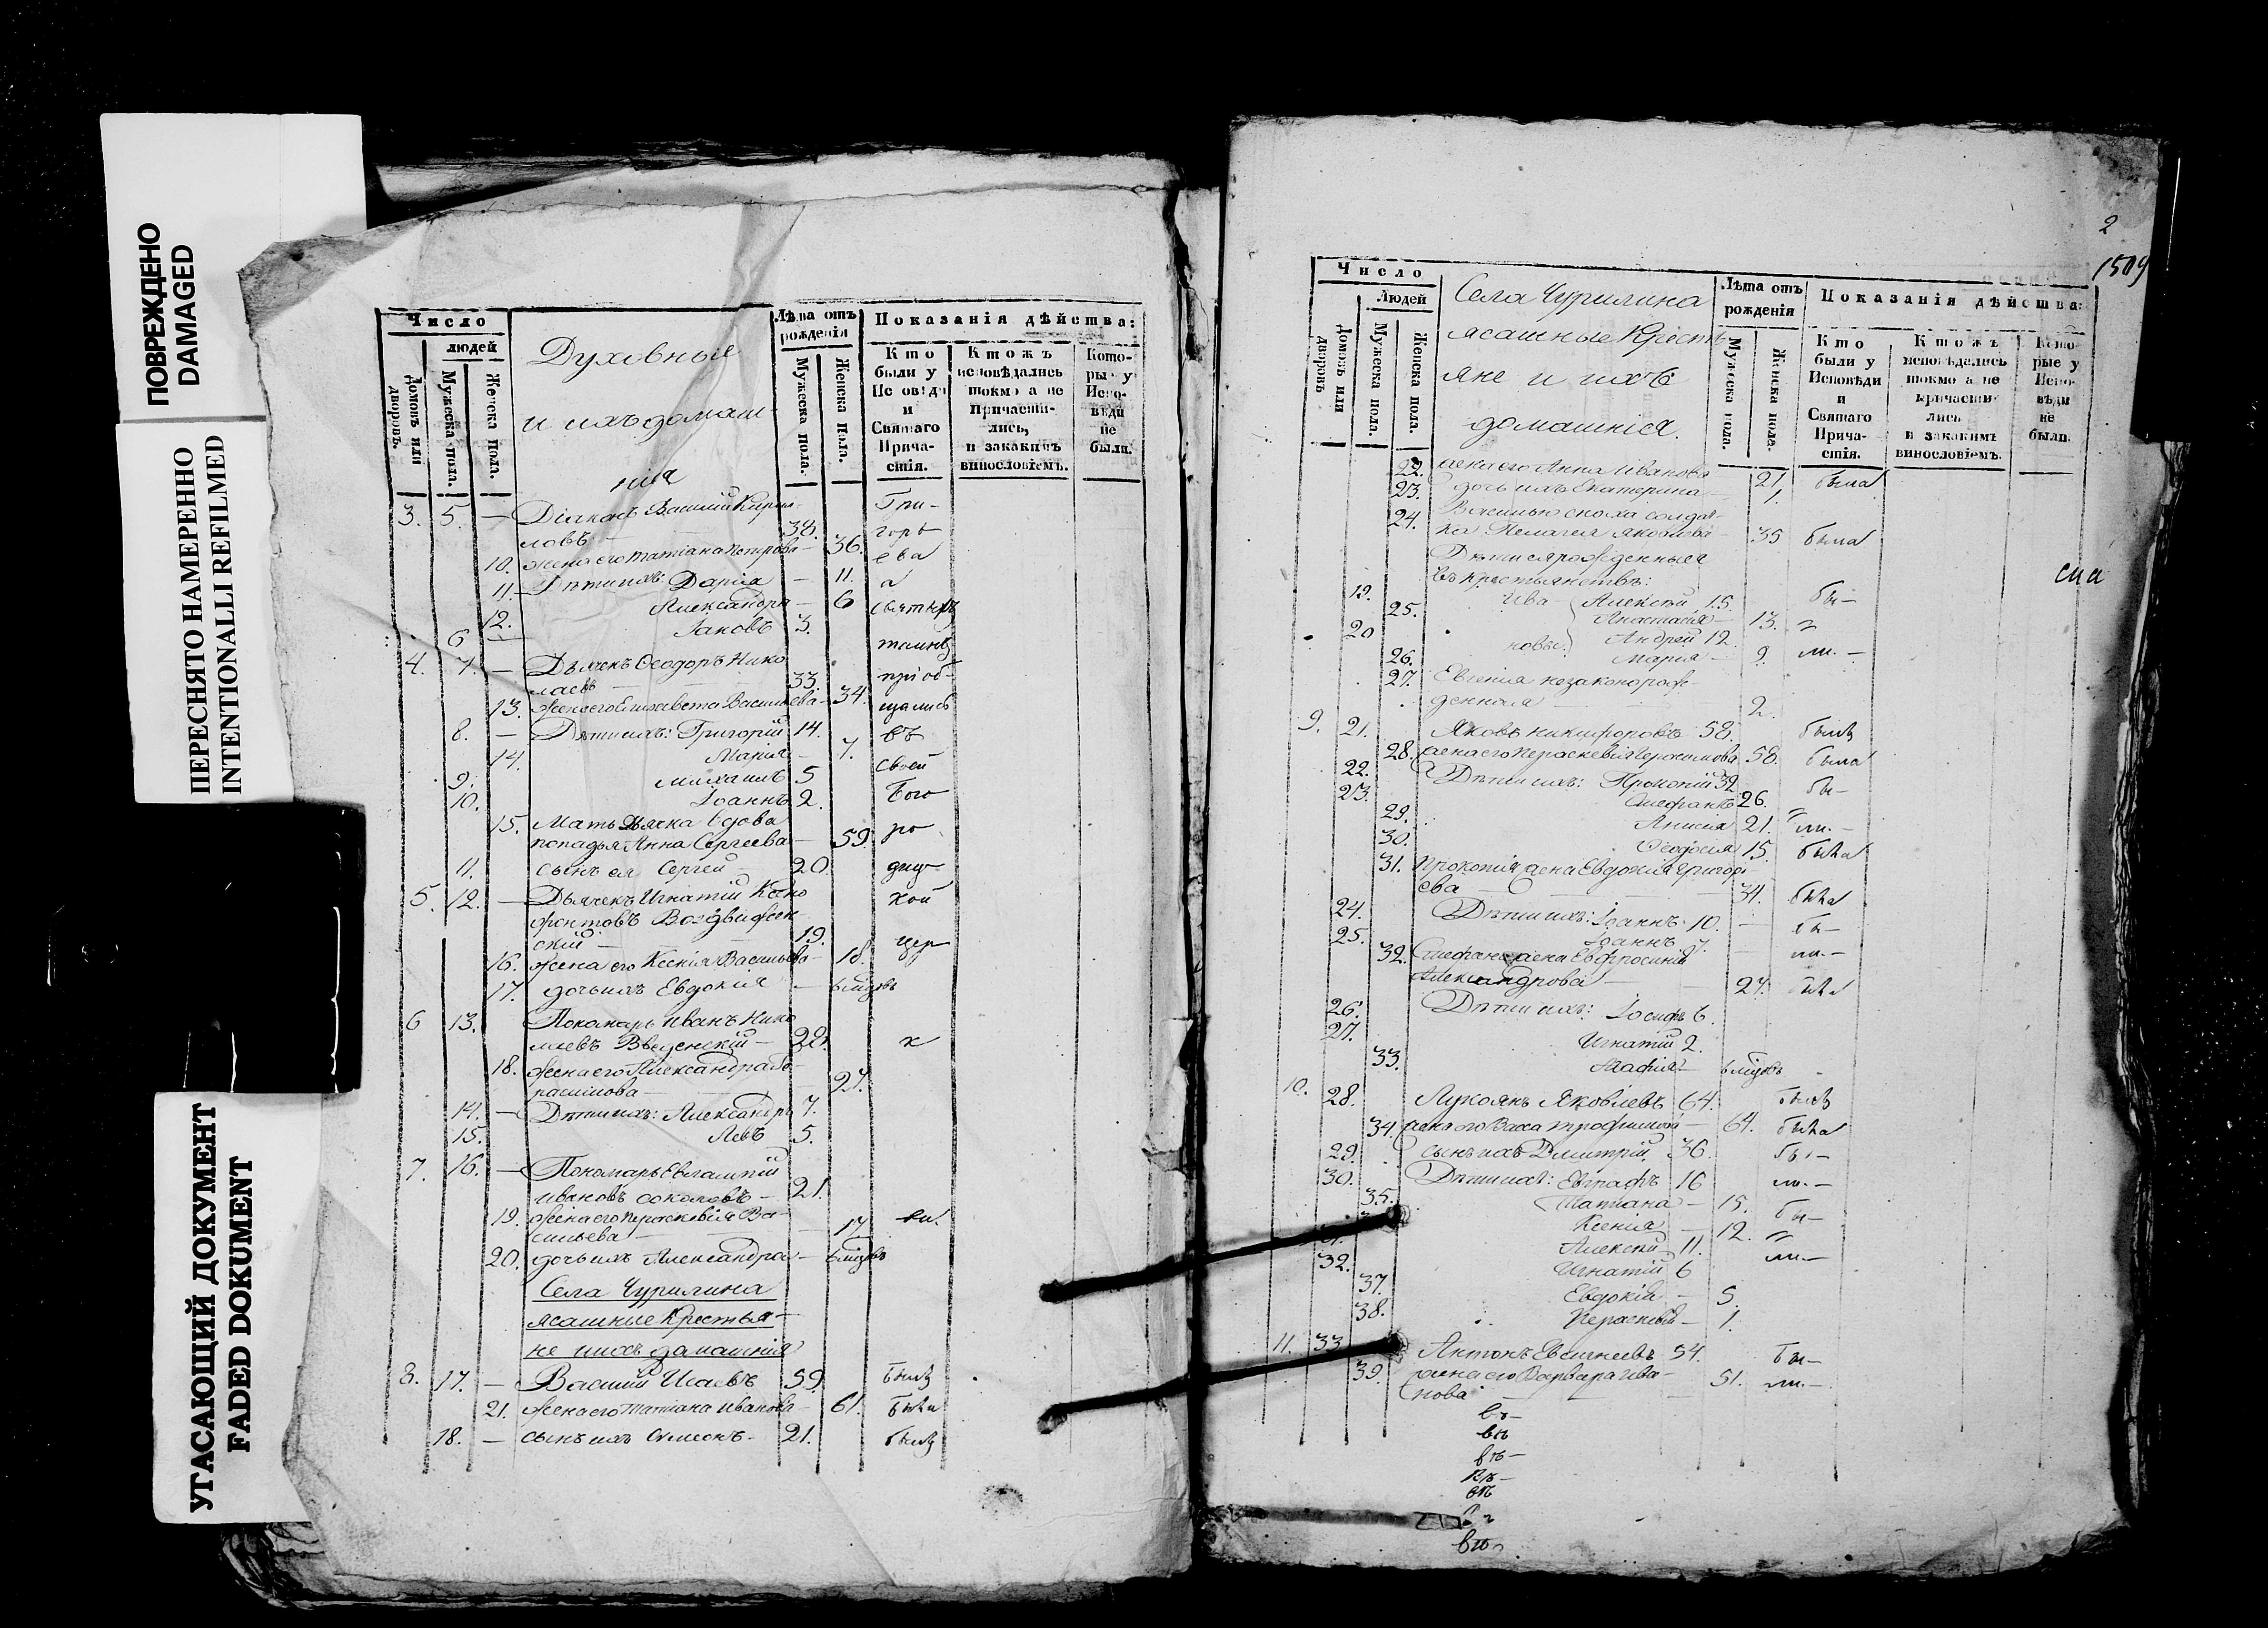 ПОВРЕЖДЕНО
DAMAGED
ПЕРЕСНЯТО НАМЕРЕННО
INTENTIONALLI REFILMED
УГАСАЮЩИЙ ДОКУМЕНТ
FADED DOKUMENT
Число
людей
Домовъ или дворовъ.
Мужеска пола.
Женска пола.
Духовныя
и ихъ домаш-
нія
Лѣта отъ рожденія
Мужеска пола.
Женска пола.
Показанія дѣйства:
Кто были у Исповѣди и Святаго Причастія.
Ктожъ исповѣдались токмо а не Причастились, и закакимъ винословіемъ.
Которые у Исповѣди не были.
3. 5. — Діаконъ Василій Кирил-
ловъ — 38.
10. жена его Татіана Петрова — 36.
11. Дѣти ихъ: Дарія — 11.
12. Александра — 6
6 — Іаковъ 3.
4. 7. — Дьячекъ Ѳеодоръ Нико
лаевъ — 33.
13. жена его Елисавета Васильева — 34.
8. — Дѣти ихъ: Григорій 14.
14. Марія — 7.
9. Михаилъ 5
10. Іоаннъ 2.
15. Мать дьячка вдова
попадья Анна Сергѣева — 59.
11. сынъ ея Сергей — 20.
5. 12. — Дьячекъ Игнатій Ксено
фонтовъ Воздвижен
скій — 19.
16. жена его Ксенія Васильева — 18.
17. дочь ихъ Евдокія —
6 13. Пономарь Иванъ Нико
лаевъ Введенскій — 22.
18. жена его Александра
27.
14. — Дѣти ихъ: Александръ 7.
15. Левъ 5.
7. 16. — Пономарь Евлампій
Ивановъ Соколовъ — 21.
19. жена его Пераскевія Ва-
сильева — 17
20. дочь ихъ Александра —
Гри-
горь
ева
а
святыхъ
таинъ
пріоб-
щались
въ
своей
Бого
ро
диц-
кой
цер
к
ви.
Села Чурилина
ясашные Крестья-
не и ихъ домашнія
8. 17. — Василій Исаевъ 59. былъ
21. жена его Татіана Иванова — 61. была
18. — сынъ ихъ Симеонъ — 21. былъ
2
1509
Число
Людей
Домовъ или дворовъ
Мужеска пола.
Женска пола.
Села Чурилина
ясашные Кресть
яне и ихъ
домашнія.
Лѣта отъ рожденія
Мужеска пола.
Женска пола.
Показанія дѣйства:
Кто были у Исповѣди и Святаго Причастія.
Ктожъ исповѣдались токмо а не причастились и закакимъ винословіемъ.
Которые у Исповѣди не были.
22. жена его Анна Иванова 21. была
23. дочь ихъ Екатерина — 1.
24. Василью сноха солдат-
ка Пелагея Яковлева — 35 была
Дѣти ея рожденныя
въ крестьянствѣ:
19. Ива- Алексѣй 15. бы-
25. Анастасія — 13.
20 новы: Андрей 12. ли. —
26. Марія — 9.
27. Евгенія незаконорож-
денная — 2.
9. 21. Яковъ Никифоровъ 58. былъ
28. жена его Пераскевія 58. была
22. Дѣти ихъ: Прокопій 32 бы-
23. Стефанъ 26.
29. Анисія 21. ли. —
30. Ѳеодосія 15. была
31. Прокопія жена Евдокія Григорь
ева — 34. была
24. Дѣти ихъ: Іоаннъ 10. — бы-
25. Іоаннъ 7. — ли. —
32. Стефана жена Евфросинія
Александрова — 27. была
26. Дѣти ихъ: Іосифъ 6.
27. Игнатій 2.
33.
10. 28. Лукоянъ Яковлевъ 64. былъ
34. жена его Васса Трофимова — 64. была
29. сынъ ихъ Димитрій 36. бы-
30. Дѣти ихъ: Евграфъ 16 ли. —
35. Татіана — 15. бы-
Ксенія — 12.
Алексѣй 11. ли. —
32. Игнатій 6
37. Евдокія — 5.
38. Пераскевія — 1.
11. 33 Антонъ Евсигнеевъ 54. бы-
39. жена его Варвара Ива-
нова — 51. ли. —